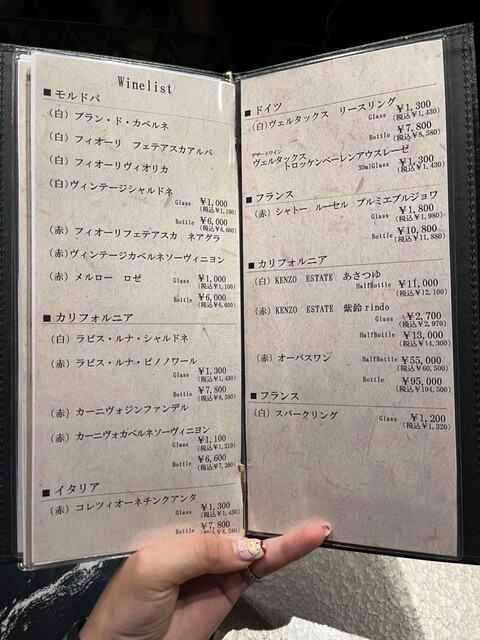 Winelist
■ モルドバ
(白) ブラン・ド・カベルネ
(白) フィオーリ フェテアスカアルバ
(白) フィオーリヴィオリカ
(白) ヴィンテージシャルドネ
Glass ¥1,000
(税込¥1,100)
Bottle ¥6,000
(税込¥6,600)
(赤) フィオーリフェテアスカ ネアグラ
(赤) ヴィンテージカベルネソーヴィニヨン
(赤) メルロー ロゼ
Glass ¥1,000
(税込¥1,100)
Bottle ¥6,000
(税込¥6,600)
■ カリフォルニア
(白) ラピス・ルナ・シャルドネ
(赤) ラピス・ルナ・ピノノワール
Glass ¥1,300
(税込¥1,430)
Bottle ¥7,800
(税込¥8,580)
(赤) カーニヴォジンファンデル
(赤) カーニヴォカベルネソーヴィニヨン
Glass ¥1,100
(税込¥1,210)
Bottle ¥6,600
(税込¥7,260)
■ イタリア
(赤) コレツィオーネチンクアンタ
Glass ¥1,300
(税込¥1,430)
Bottle ¥7,800
(税込¥8,580)
■ ドイツ
(白) ヴェルタックス リースリング
Glass ¥1,300
(税込¥1,430)
Bottle ¥7,800
(税込¥8,580)
デザートワイン
ヴェルタックス
トロッケンベーレンアウスレーゼ
30mlGlass ¥1,300
(税込¥1,430)
■ フランス
(赤) シャトー ルーセル プルミエブルジョワ
Glass ¥1,800
(税込¥1,980)
Bottle ¥10,800
(税込¥11,880)
■ カリフォルニア
(白) KENZO ESTATE あさつゆ
HalfBottle ¥11,000
(税込¥12,100)
(赤) KENZO ESTATE 紫鈴rindo
Glass ¥2,700
(税込¥2,970)
HalfBottle ¥13,000
(税込¥14,300)
(赤) オーパスワン HalfBottle ¥55,000
(税込¥60,500)
Bottle ¥95,000
(税込¥104,500)
■ フランス
(白) スパークリング Glass ¥1,200
(税込¥1,320)